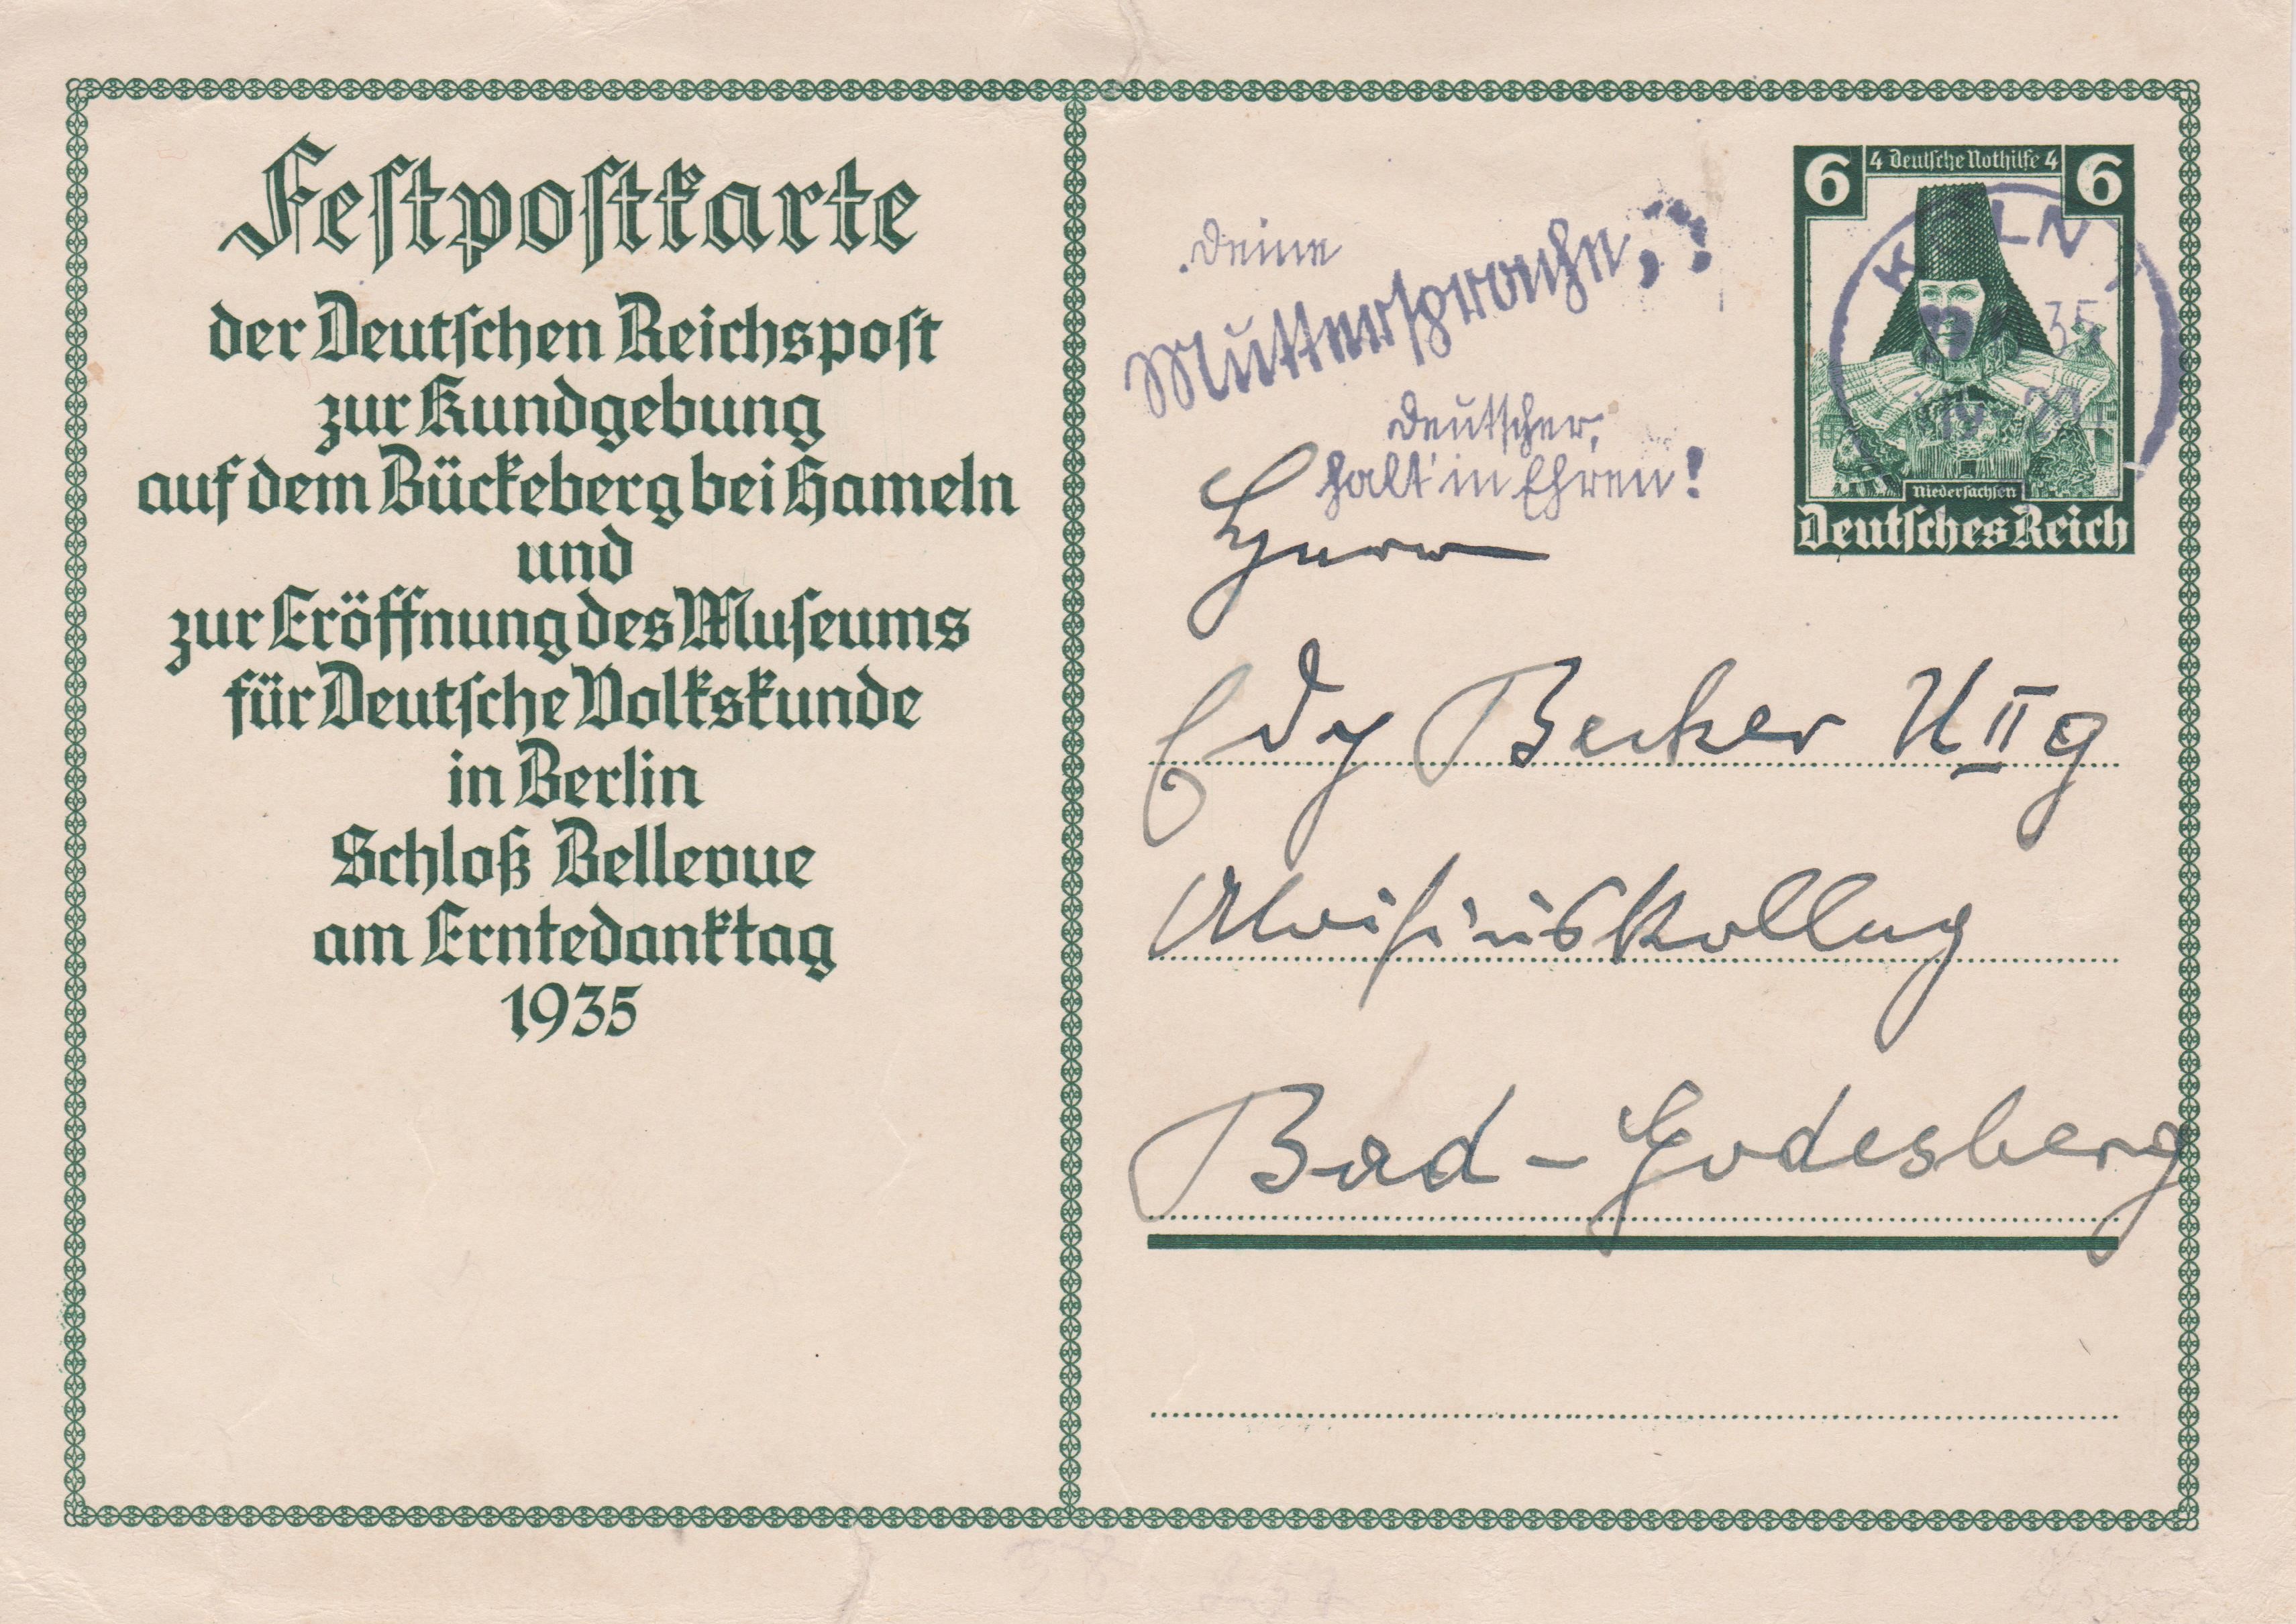 Festpostkarte
der Deutschen Reichspost
zur Kundgebung
auf dem Bückeberg bei Hameln
und
zur Eröffnung des Museums
für Deutsche Volkskunde
in Berlin
Schloß Bellevue
am Erntedanktag
1935
Deine
Muttersprache,
Deutscher,
halt' in Ehren!
6 4 Deutsche Nothilfe 4 6
Niedersachsen
Deutsches Reich
KÖLN
35
Herrn
Edy Becker U II g
Aloisiuskolleg
Bad-Godesberg